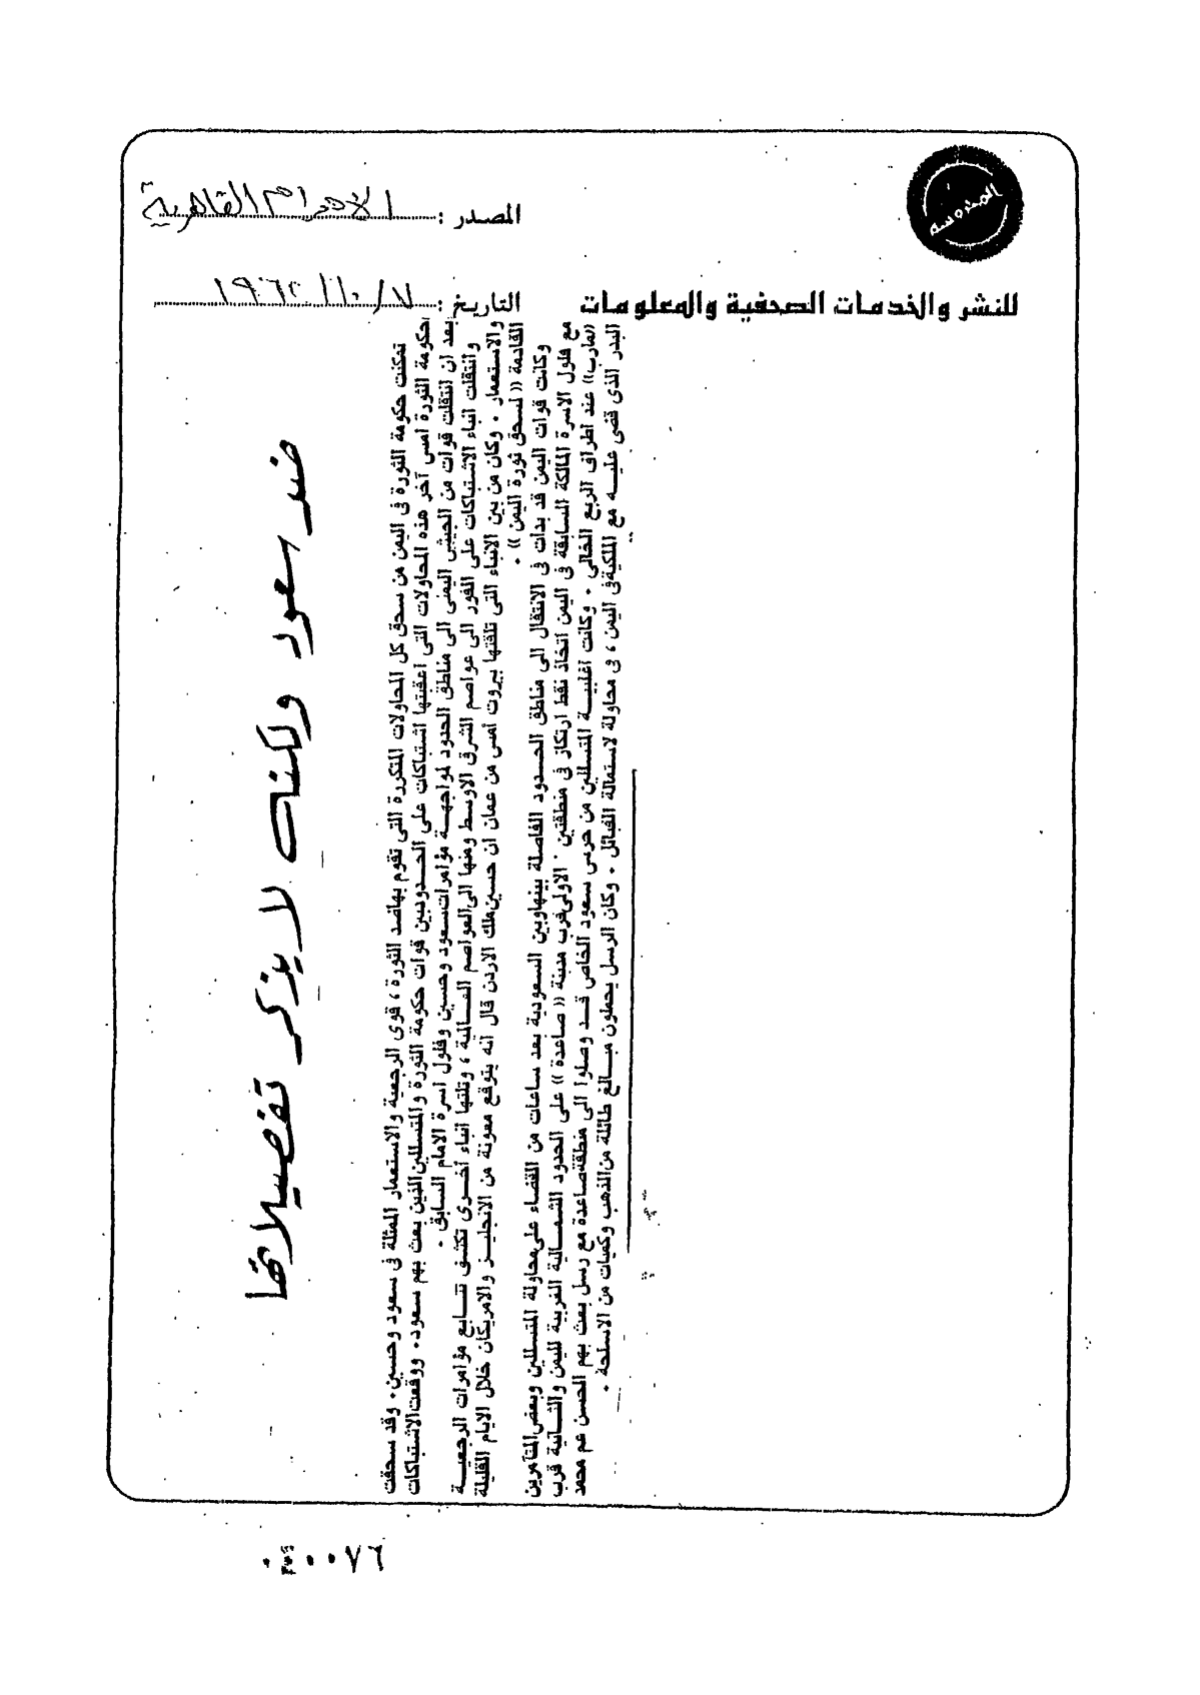 المحروسة
المصدر : الاهرام القاهرية
للنشر والخدمات الصحفية والمعلومات
التاريخ : ١٩٦٢/١٠/٧
ضد سعود ولكنه لا يذكر تفصيلاتها
تمكنت حكومة الثورة فى اليمن من سحق كل المحاولات المتكررة التى تقوم بها ضد الثورة ، قوى الرجعية والاستعمار الممثلة فى سعود وحسين . وقد سحقت
حكومة الثورة أمس آخر هذه المحاولات التى أعقبتها اشتباكات على الحدود بين قوات حكومة الثورة والمتسللين الذين بعث بهم سعود . ووقعت الاشتباكات
بعد أن انتقلت قوات من الجيش اليمنى الى مناطق الحدود لمواجهة مؤامرات سعود وحسين وفلول أسرة الامام السابق .
وانتقلت أنباء الاشتباكات على الفور الى عواصم الشرق الاوسط ومنها الى العواصم العالمية ، وتلتها أنباء أخرى تكشف تتابع مؤامرات الرجعية
والاستعمار . وكان من بين الانباء التى تلقتها بيروت أمس من عمان أن حسين ملك الاردن قال أنه يتوقع معونة من الانجليز والامريكان خلال الايام القليلة
القادمة « لسحق ثورة اليمن » .
وكانت قوات اليمن قد بدأت فى الانتقال الى مناطق الحدود الفاصلة بينها وبين السعودية بعد ساعات من القضاء على محاولة المتسللين وبعض المتآمرين
مع فلول الاسرة المالكة السابقة فى اليمن اتخاذ نقط ارتكاز فى منطقتين . الاولى قرب مدينة « صاعدة » على الحدود الشمالية الغربية لليمن والثانية قرب
« مارب » عند أطراف الربع الخالى . وكانت أغلبية المتسللين من حرس سعود الخاص قد وصلوا الى منطقة صاعدة مع رسل بعث بهم الحسن عم محمد
البدر الذى قضى عليه مع الملكية فى اليمن ، فى محاولة لاستمالة القبائل . وكان الرسل يحملون مبالغ طائلة من الذهب وكميات من الاسلحة .